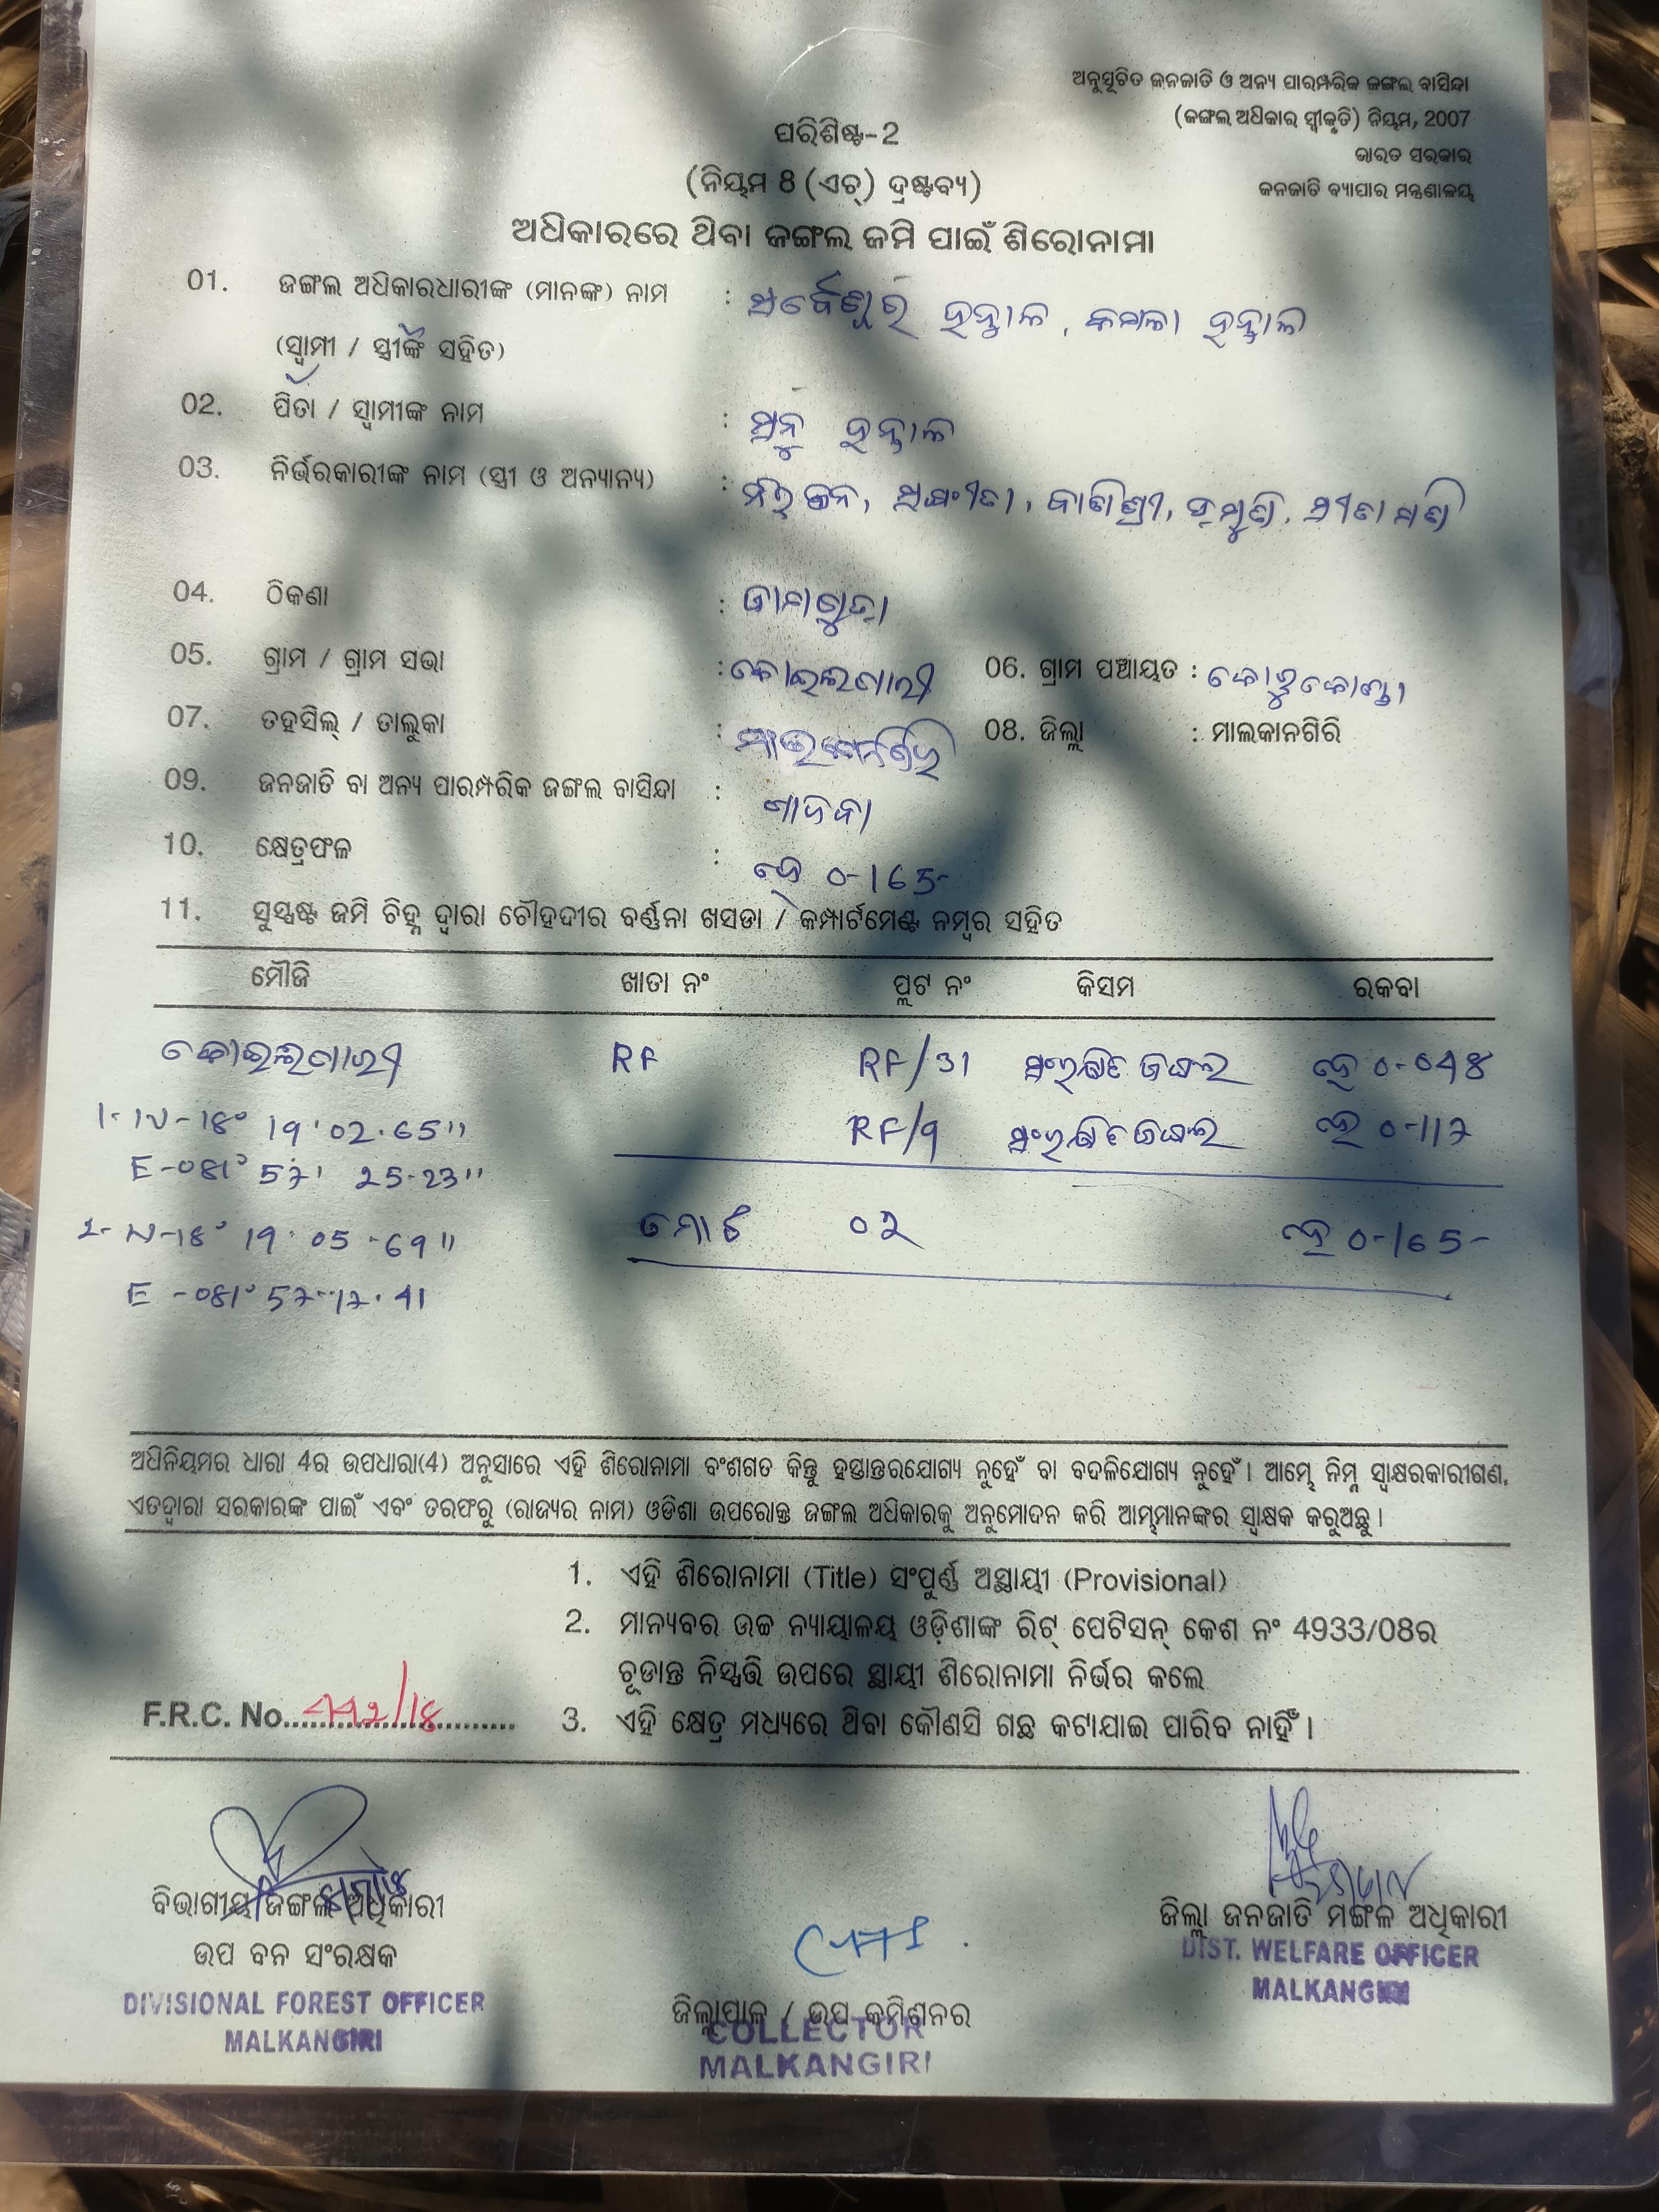 ଅନୁସୂଚିତ ଜନଜାତି ଓ ଅନ୍ୟ ପାରମ୍ପରିକ ଜଙ୍ଗଲ ବାସିନ୍ଦା
(ଜଙ୍ଗଲ ଅଧିକାର ସ୍ୱୀକୃତି) ନିୟମ, 2007
ଭାରତ ସରକାର
ଜନଜାତି ବ୍ୟାପାର ମନ୍ତ୍ରଣାଳୟ
ପରିଶିଷ୍ଟ-2
(ନିୟମ 8 (ଏଚ୍) ଦ୍ରଷ୍ଟବ୍ୟ)
ଅଧିକାରରେ ଥିବା ଜଙ୍ଗଲ ଜମି ପାଇଁ ଶିରୋନାମା
01. ଜଙ୍ଗଲ ଅଧିକାରଧାରୀଙ୍କ (ମାନଙ୍କ) ନାମ : ହନ୍ତାଳ, କମଳା ହନ୍ତାଳ
(ସ୍ୱାମୀ / ସ୍ତ୍ରୀଙ୍କ ସହିତ)
02. ପିତା / ସ୍ୱାମୀଙ୍କ ନାମ : ହନ୍ତାଳ
03. ନିର୍ଭରକାରୀଙ୍କ ନାମ (ସ୍ତ୍ରୀ ଓ ଅନ୍ୟାନ୍ୟ) :
04. ଠିକଣା :
05. ଗ୍ରାମ / ଗ୍ରାମ ସଭା : 06. ଗ୍ରାମ ପଞ୍ଚାୟତ : କୋରୁକୋଣ୍ଡା
07. ତହସିଲ୍ / ତାଲୁକା : 08. ଜିଲ୍ଲା : ମାଲକାନଗିରି
09. ଜନଜାତି ବା ଅନ୍ୟ ପାରମ୍ପରିକ ଜଙ୍ଗଲ ବାସିନ୍ଦା :
10. କ୍ଷେତ୍ରଫଳ : ହେ 0-165-
11. ସୁସ୍ପଷ୍ଟ ଜମି ଚିହ୍ନ ଦ୍ୱାରା ଚୌହଦୀର ବର୍ଣ୍ଣନା ଖସଡା / କମ୍ପାର୍ଟମେଣ୍ଟ ନମ୍ବର ସହିତ
ମୌଜି ଖାତା ନଂ ପ୍ଲଟ ନଂ କିସମ ରକବା
RF RF/31 ସଂରକ୍ଷିତ ଜଙ୍ଗଲ ହେ 0-048
1- N-18° 19' 02.65" RF/9 ସଂରକ୍ଷିତ ଜଙ୍ଗଲ ହେ 0-117
E-081° 57' 25.23"
2- N-18° 19' 05.69" ମୋଟ 02 ହେ 0-165-
E-081° 57 17.41
ଅଧିନିୟମର ଧାରା 4ର ଉପଧାରା(4) ଅନୁସାରେ ଏହି ଶିରୋନାମା ବଂଶଗତ କିନ୍ତୁ ହସ୍ତାନ୍ତରଯୋଗ୍ୟ ନୁହେଁ ବା ବଦଳିଯୋଗ୍ୟ ନୁହେଁ । ଆମ୍ଭେ ନିମ୍ନ ସ୍ୱାକ୍ଷରକାରୀଗଣ,
ଏତଦ୍ୱାରା ସରକାରଙ୍କ ପାଇଁ ଏବଂ ତରଫରୁ (ରାଜ୍ୟର ନାମ) ଓଡିଶା ଉପରୋକ୍ତ ଜଙ୍ଗଲ ଅଧିକାରକୁ ଅନୁମୋଦନ କରି ଆମ୍ଭମାନଙ୍କର ସ୍ୱାକ୍ଷକ କରୁଅଛୁ ।
1. ଏହି ଶିରୋନାମା (Title) ସଂପୁର୍ଣ୍ଣ ଅସ୍ଥାୟୀ (Provisional)
2. ମାନ୍ୟବର ଉଚ୍ଚ ନ୍ୟାୟାଳୟ ଓଡ଼ିଶାଙ୍କ ରିଟ୍ ପେଟିସନ୍ କେଶ ନଂ 4933/08ର
ଚୂଡାନ୍ତ ନିସ୍ପତ୍ତି ଉପରେ ସ୍ଥାୟୀ ଶିରୋନାମା ନିର୍ଭର କଲେ
F.R.C. No. 3. ଏହି କ୍ଷେତ୍ର ମଧ୍ୟରେ ଥିବା କୌଣସି ଗଛ କଟାଯାଇ ପାରିବ ନାହିଁ ।
ବିଭାଗୀୟ ଜଙ୍ଗଲ ଅଧିକାରୀ
ଉପ ବନ ସଂରକ୍ଷକ
DIVISIONAL FOREST OFFICER
MALKANGIRI
ଜିଲ୍ଲାପାଳ / ଉପ କମିଶନର
COLLECTOR
MALKANGIRI
ଜିଲ୍ଲା ଜନଜାତି ମଙ୍ଗଳ ଅଧିକାରୀ
DIST. WELFARE OFFICER
MALKANGIRI